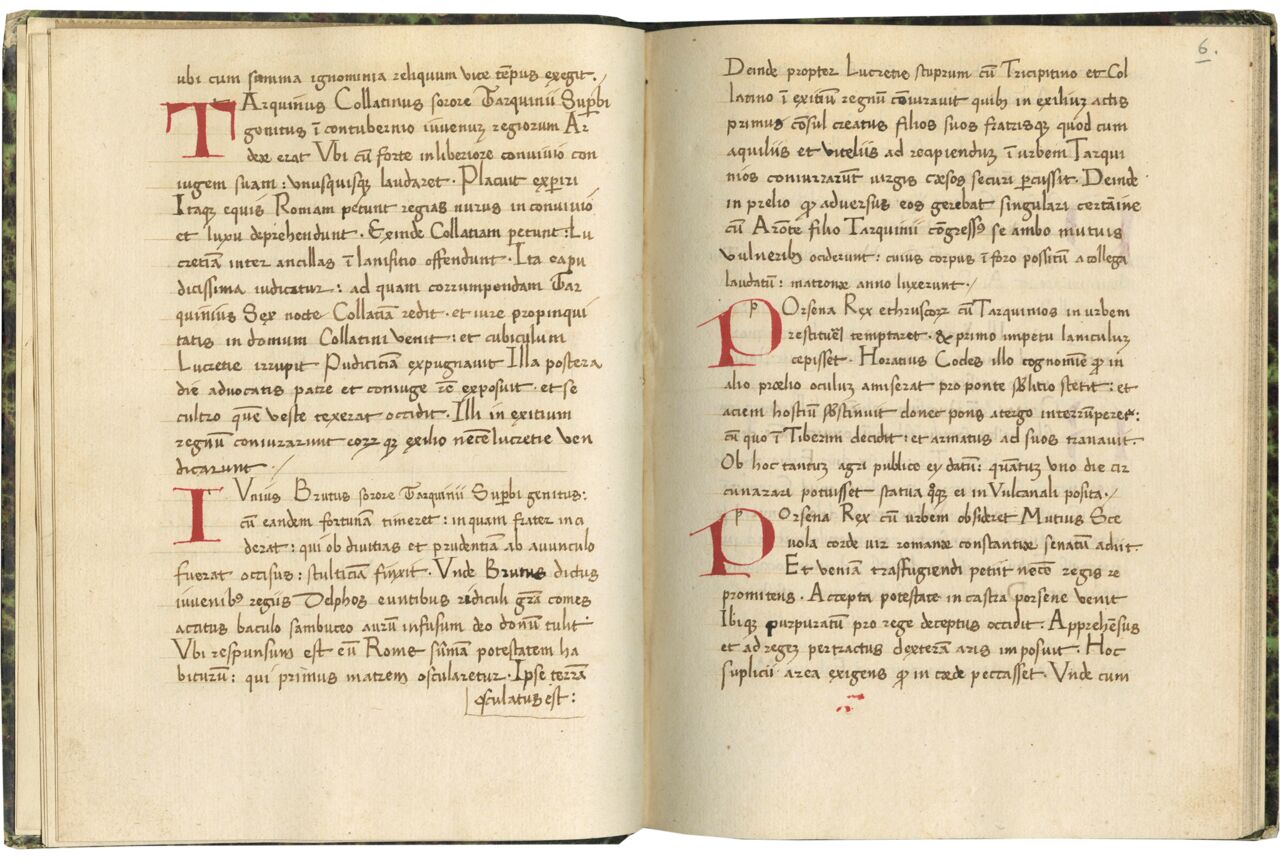 ubi cum summa ignominia reliquum vite tēpus exegit.
TArquinius Collatinus sorore Tarquinii Suꝑbi
genitus ī contubernio iuvenuꝫ regiorum Ar
deæ erat Ubi cū forte in liberiore convivio con
iugem suam: unusquisqꝫ laudaret. Placuit exꝑiri
Itaqꝫ equis Romam petunt regias nurus in convivio
et luxu deprehendunt. Exinde Collatiam petunt: Lu
cretiā inter ancillas ī lanifitio offendunt. Ita e apu
dicissima iudicatur: ad quam corrumpendam Tar
quinius Sex nocte Collatiā redit. et iure propinqui
tatis in domum Collatini venit: et cubiculum
Lucretie irrupit Pudicitiā expugnavit Illa postera
die advocatis patre et coniuge rē exposuit. et se
cultro quē veste texerat occidit. Illi in exitium
regnū coniurarunt eoꝝ qꝫ exilio necē lucretie ven
dicarunt ./
IUnius Brutus sorore Tarquinii Suꝑbi genitus:
cū eandem fortunā timeret: in quam frater inci
derat: qui ob divitias et prudentiā ab avunculo
fuerat occisus: stulticiā finxit. Unde Brutus dictus
iuvenibꝰ regiis Delphos euntibus ridiculi grā comes
actitus baculo sambuceo aurū infusum deo donū tulit
Ubi responsum est eū Rome sūmā potestatem ha
bicurū: qui primus matrem oscularetur. Ipse terrā
osculatus est:
6.
Deinde propter Lucretie stuprum cū Tricipitino et Col
latino ī exitiū regnū cōiuravit quibꝫ in exiliuꝫ actis
primus cōsul creatus filios suos fratrisqꝫ quod cum
aquiliis et viteliis ad recipienduꝫ ī urbem Tarqui
nios coniurrarūt virgis cæsos securi ꝑcussit. Deinde
in prelio ꝙ adversus eos gerebat singulari certāine
cū Arōte filio Tarquinii cōgressꝰ se ambo mutuis
vulneribꝫ ociderunt: cuius corpus ī foro possitū a collega
laudatū: matronæ anno luxerunt./
p
POrsena Rex ethruscoꝝ cū Tarquinios in urbem
restituēl temptaret. & primo impetu Ianiculuꝫ
cepisset. Horatius Cocles illo cognomīe ꝙ in
alio prœlio oculuꝫ amiserat pro ponte sblitio stetit: et
aciem hostiū sbstinuit donec pons atergo interrūperet:
cū quo ī Tiberim decidit: et armatus ad suos tranavit
Ob hoc tantuꝫ agri publico ey datū: quātuꝫ uno die cir
cunarari potuisset statua qꝗe ei in Vulcanali posita./
p
POrsena Rex cū urbem obsideret Mutius Sce
vola corde vir romanæ constantiæ senatū adiit.
Et veniā trasfugiendi petiit necē regis re
promitens. Accepta potestate in castra porsene venit
Ibiqꝫ purpuratū pro rege deceptus occidit. Apprehēsus
et ad regeꝫ pertractus dexterā aris imposuit. Hoc
suplicii area exigens ꝙ in cæde peccasset. Unde cum